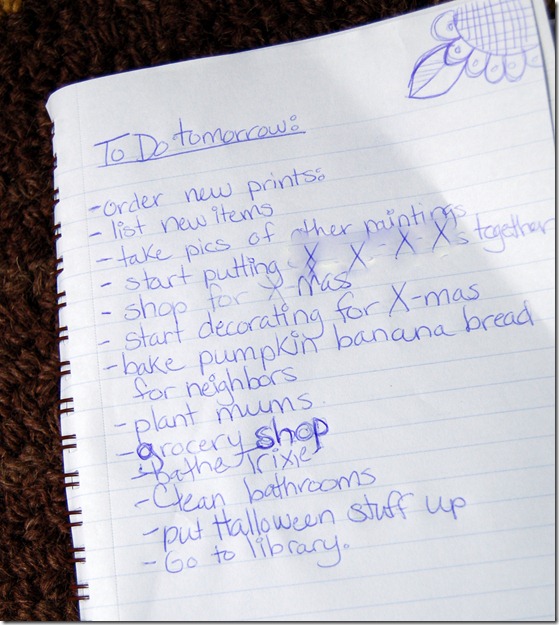 To Do tomorrow:
- order new prints:
- list new items
- take pics of other paintings
- start putting X - X - X - X's together
- shop for X-mas
- start decorating for X-mas
- bake pumpkin banana bread
for neighbors
- plant mums.
- grocery shop
- Bathe Trixie
- Clean bathrooms
- put Halloween stuff up
- Go to library.